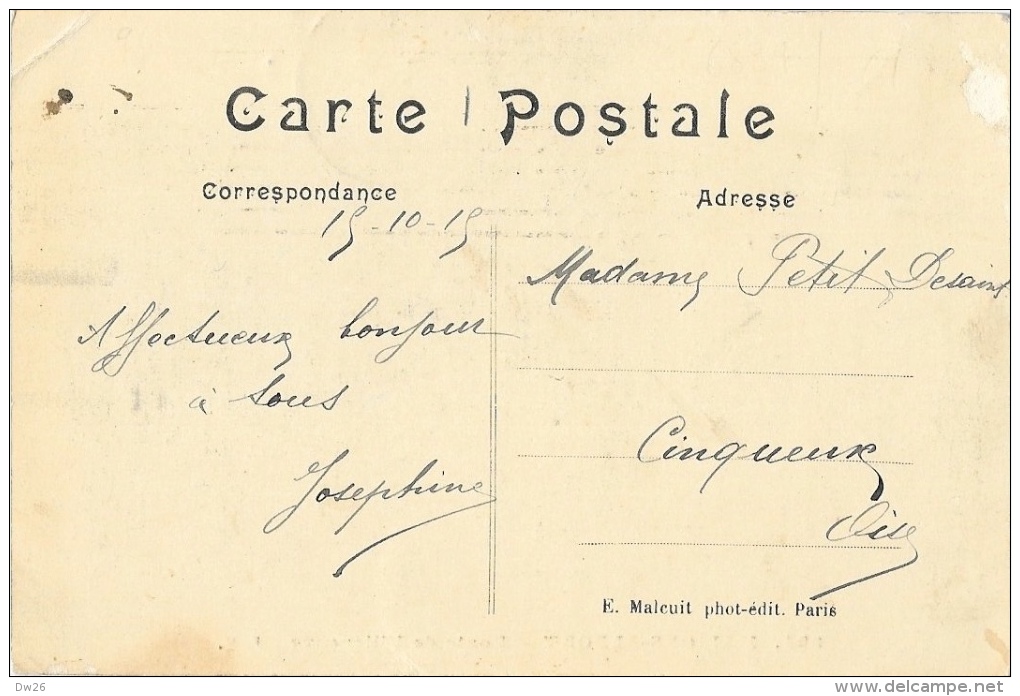 Carte Postale
Correspondance
Adresse
15-10-15
Madame Petit Desaint
Affectueux bonjour
à tous
Josephine
Cinqueux
Oise
E. Malcuit phot-édit. Paris
Dw26
www.delcampe.net